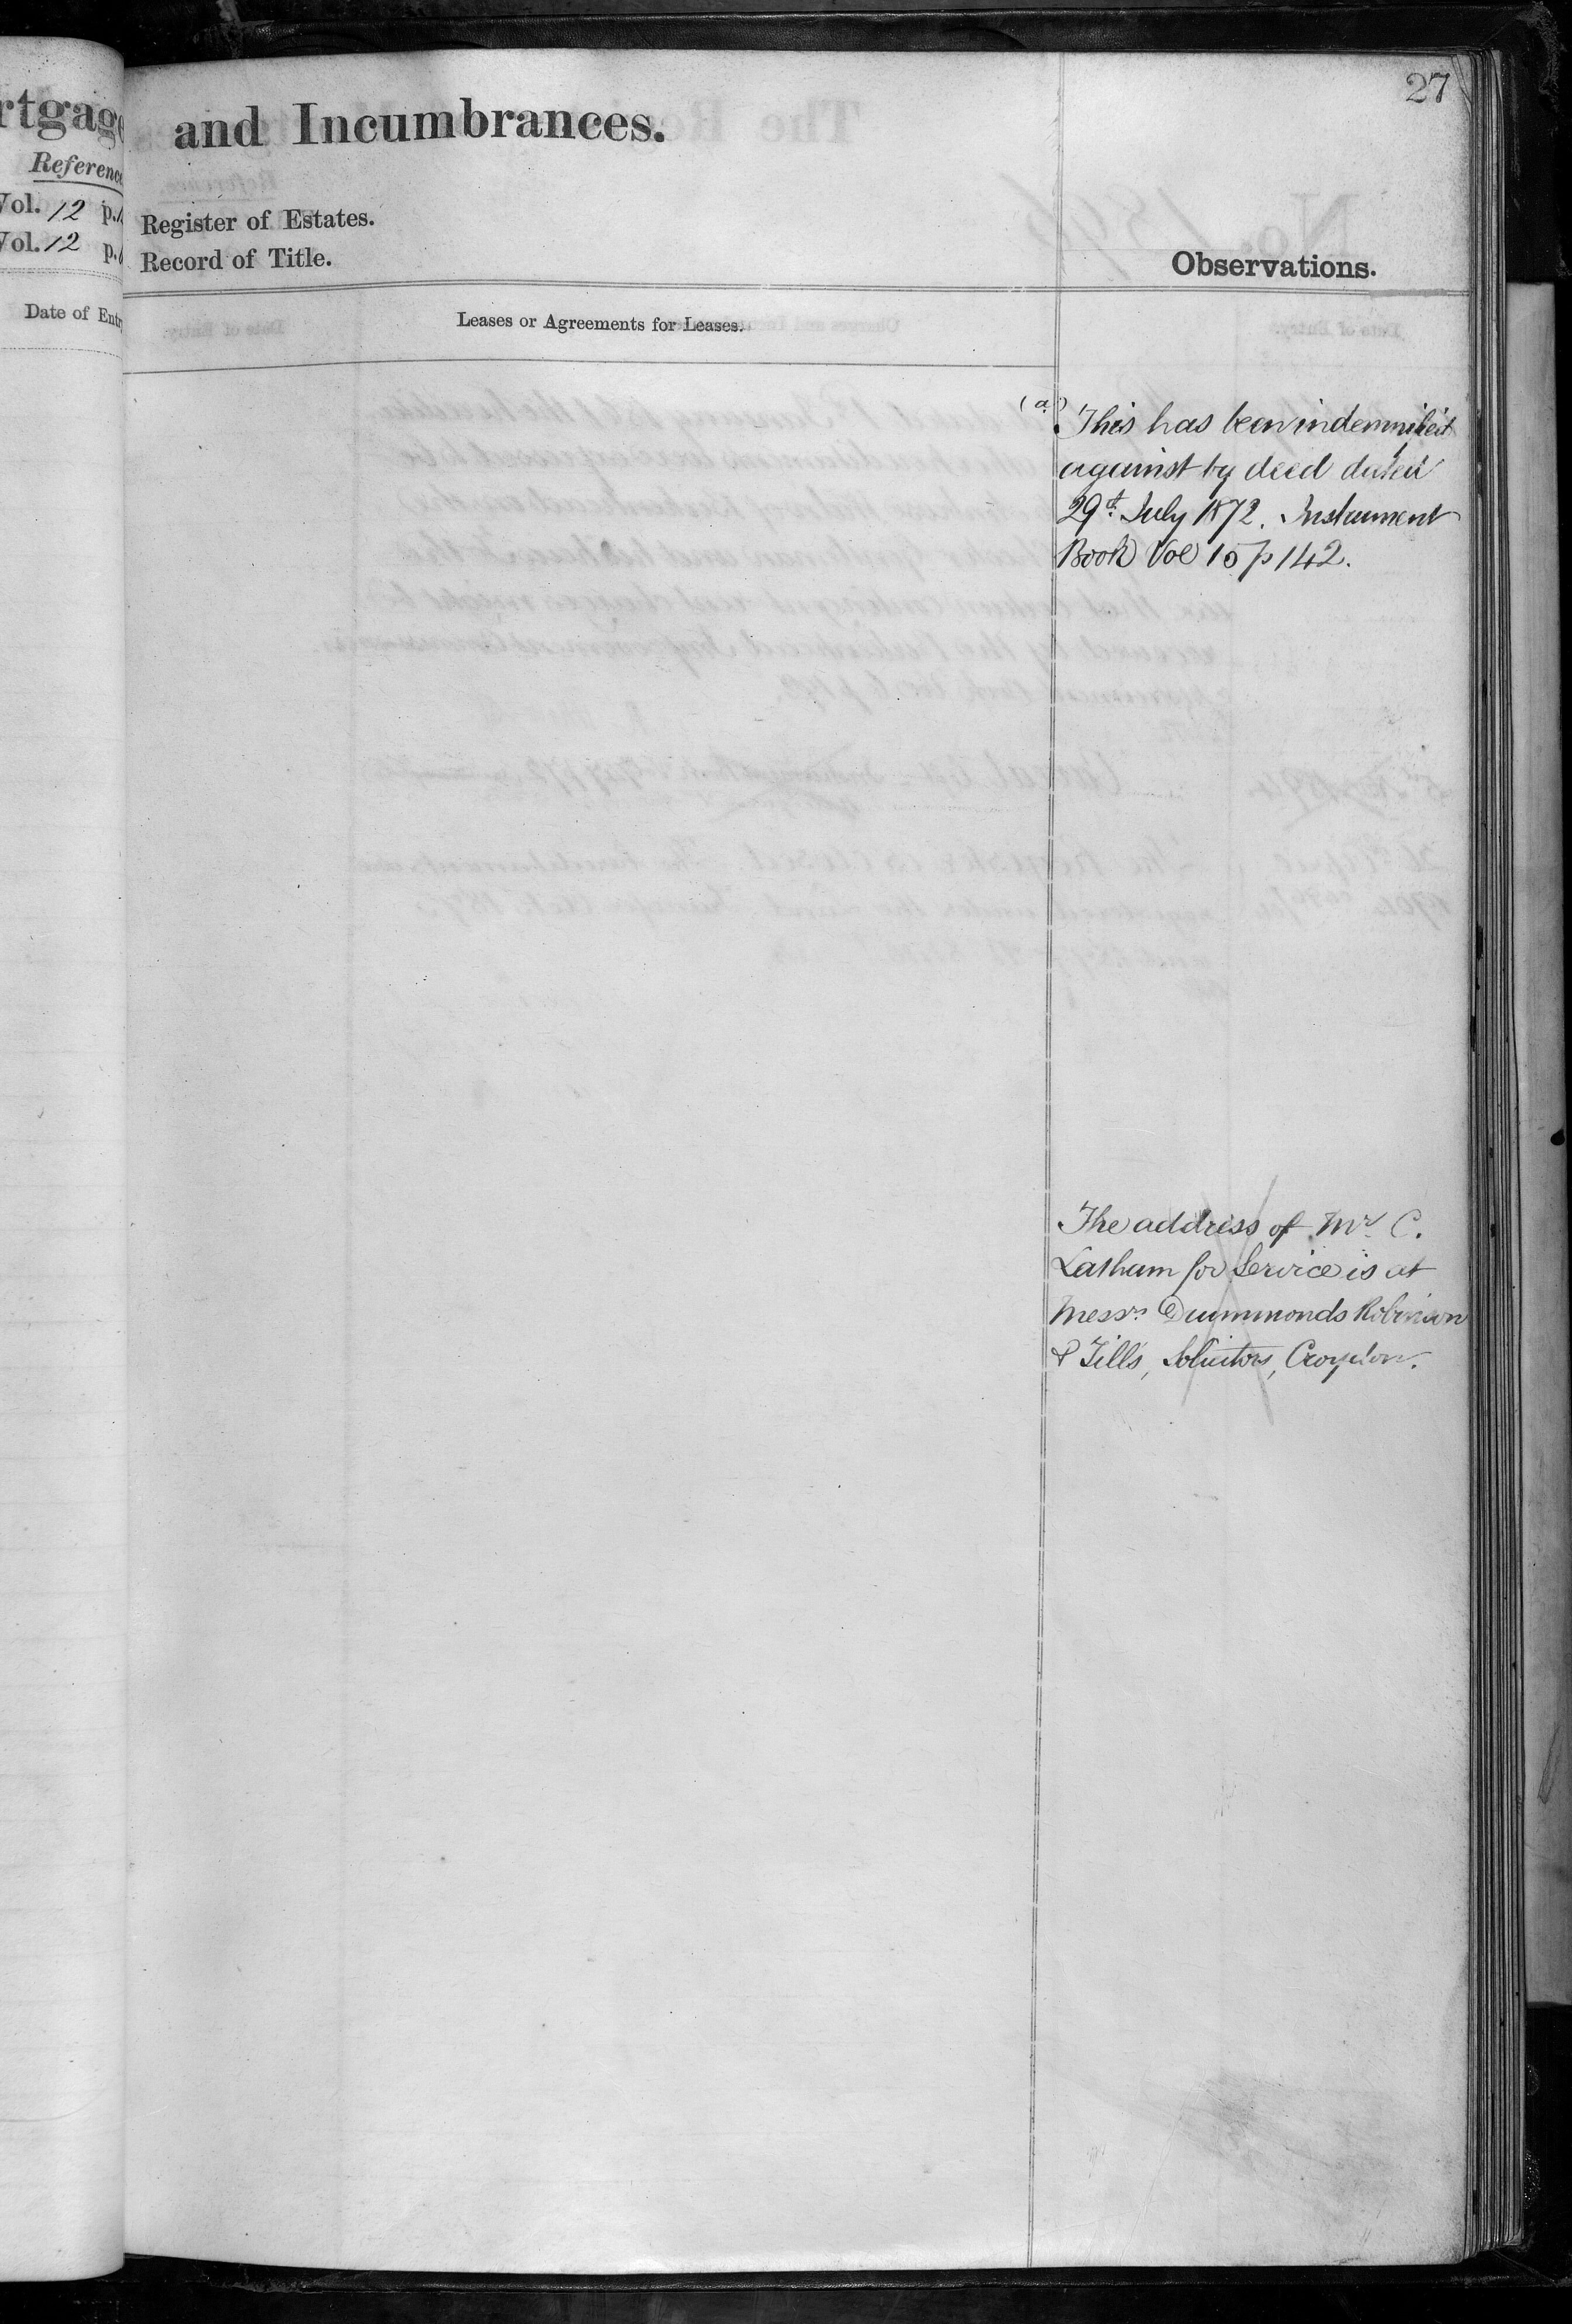 27
and Incumbrances.
Reference
Vol. 12 p.
Vol. 12 p.
Register of Estates.
Record of Title.
Observations.
Date of Entr
Leases or Agreements for Leases.
(a)
This has been indemnified
against by deed dated
29th July 1872. Instrument
Book Vol 15 p 142.
The address of Mr C.
Latham for Service is at
Messrs Drummonds Robinson
& Tills, Solicitors, Croydon.